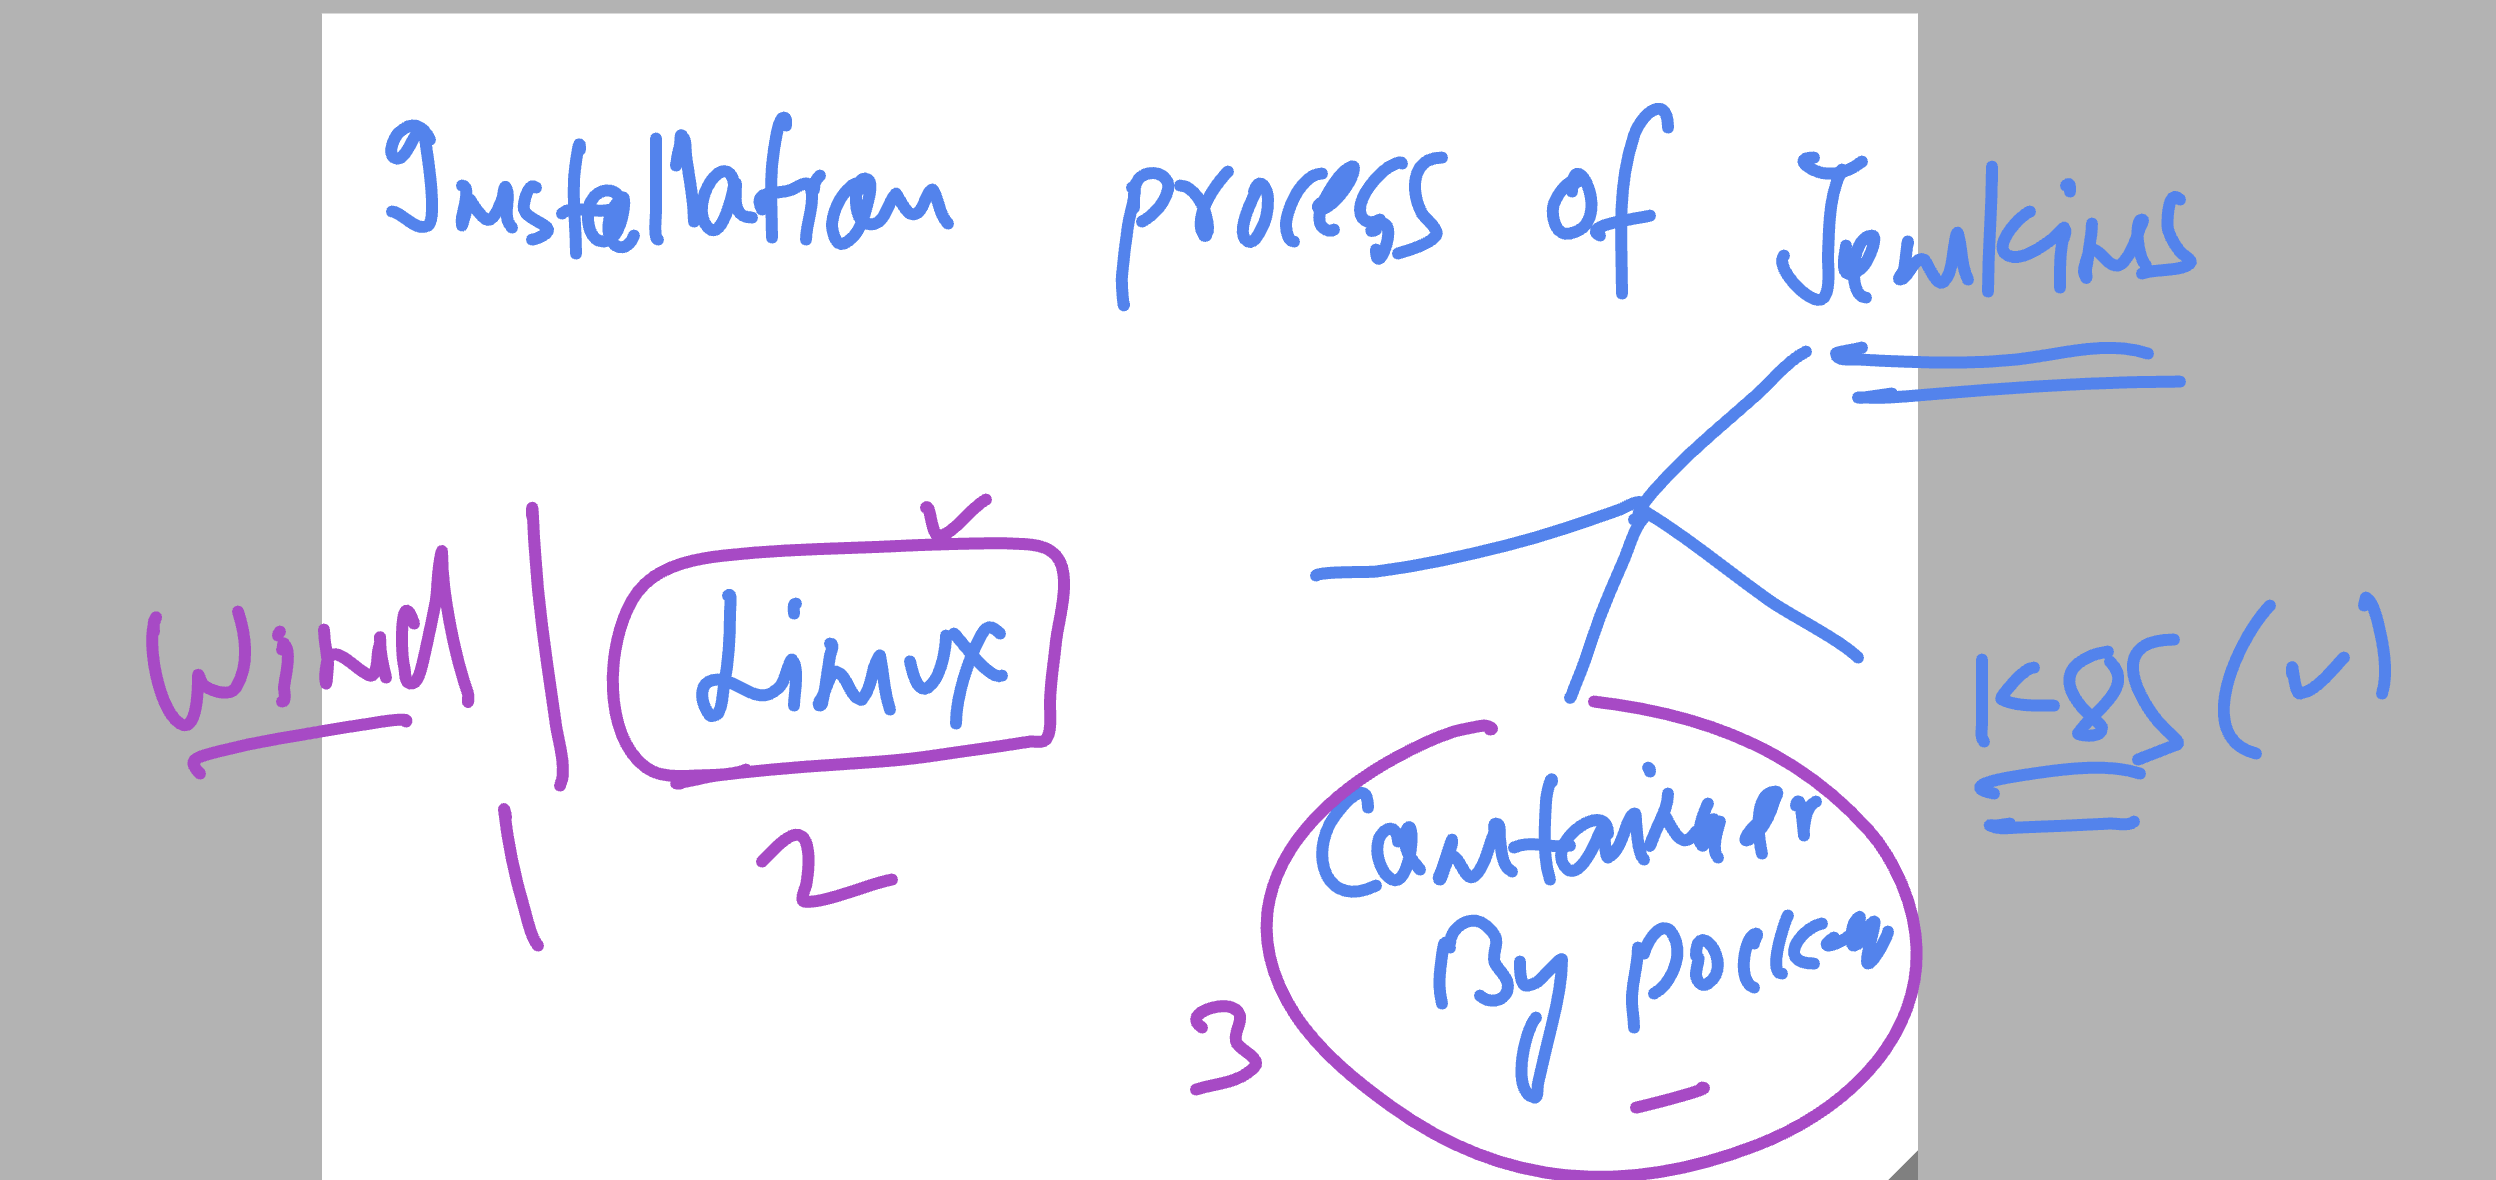 Installation process of Jenkins
Wind
Linux
K8S (✓)
1
2
Container
By
3